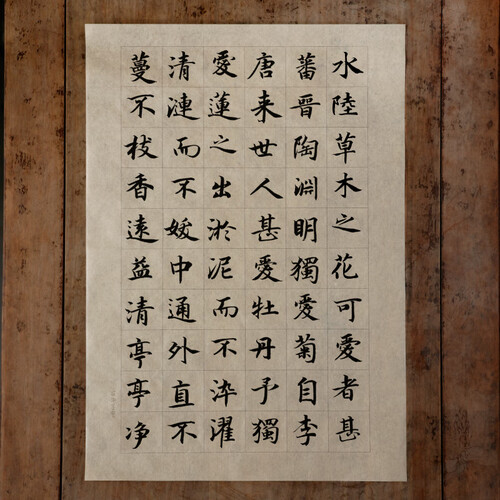 水陸草木之花可愛者甚
蕃晉陶淵明獨愛菊自李
唐来世人甚愛牡丹予獨
愛蓮之出淤泥而不染濯
清漣而不媛中通外直不
蔓不枝香遠益清亭亭净